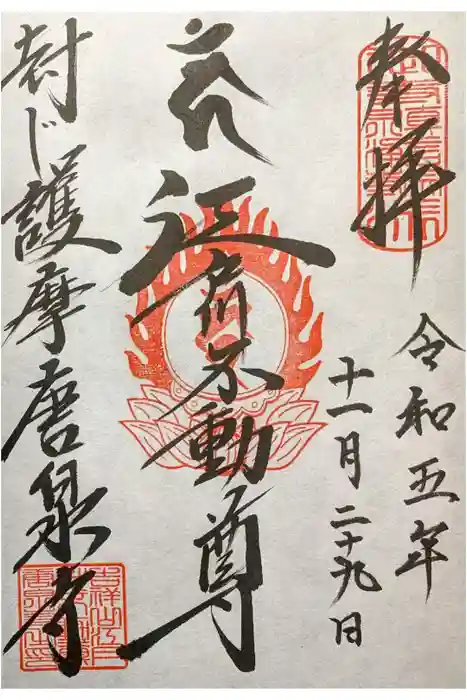 奉拝
令和五年
十一月二十九日
江戸不動尊
封じ護摩唐泉寺